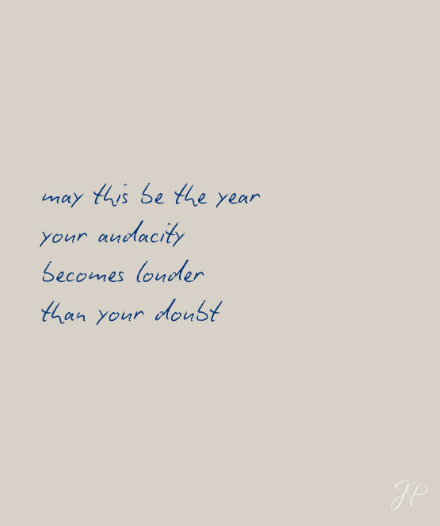 may this be the year
your audacity
becomes louder
than your doubt
JP